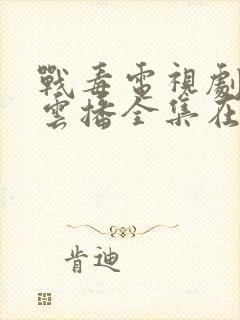 戰毒電視劇
雲播全集在
肯迪